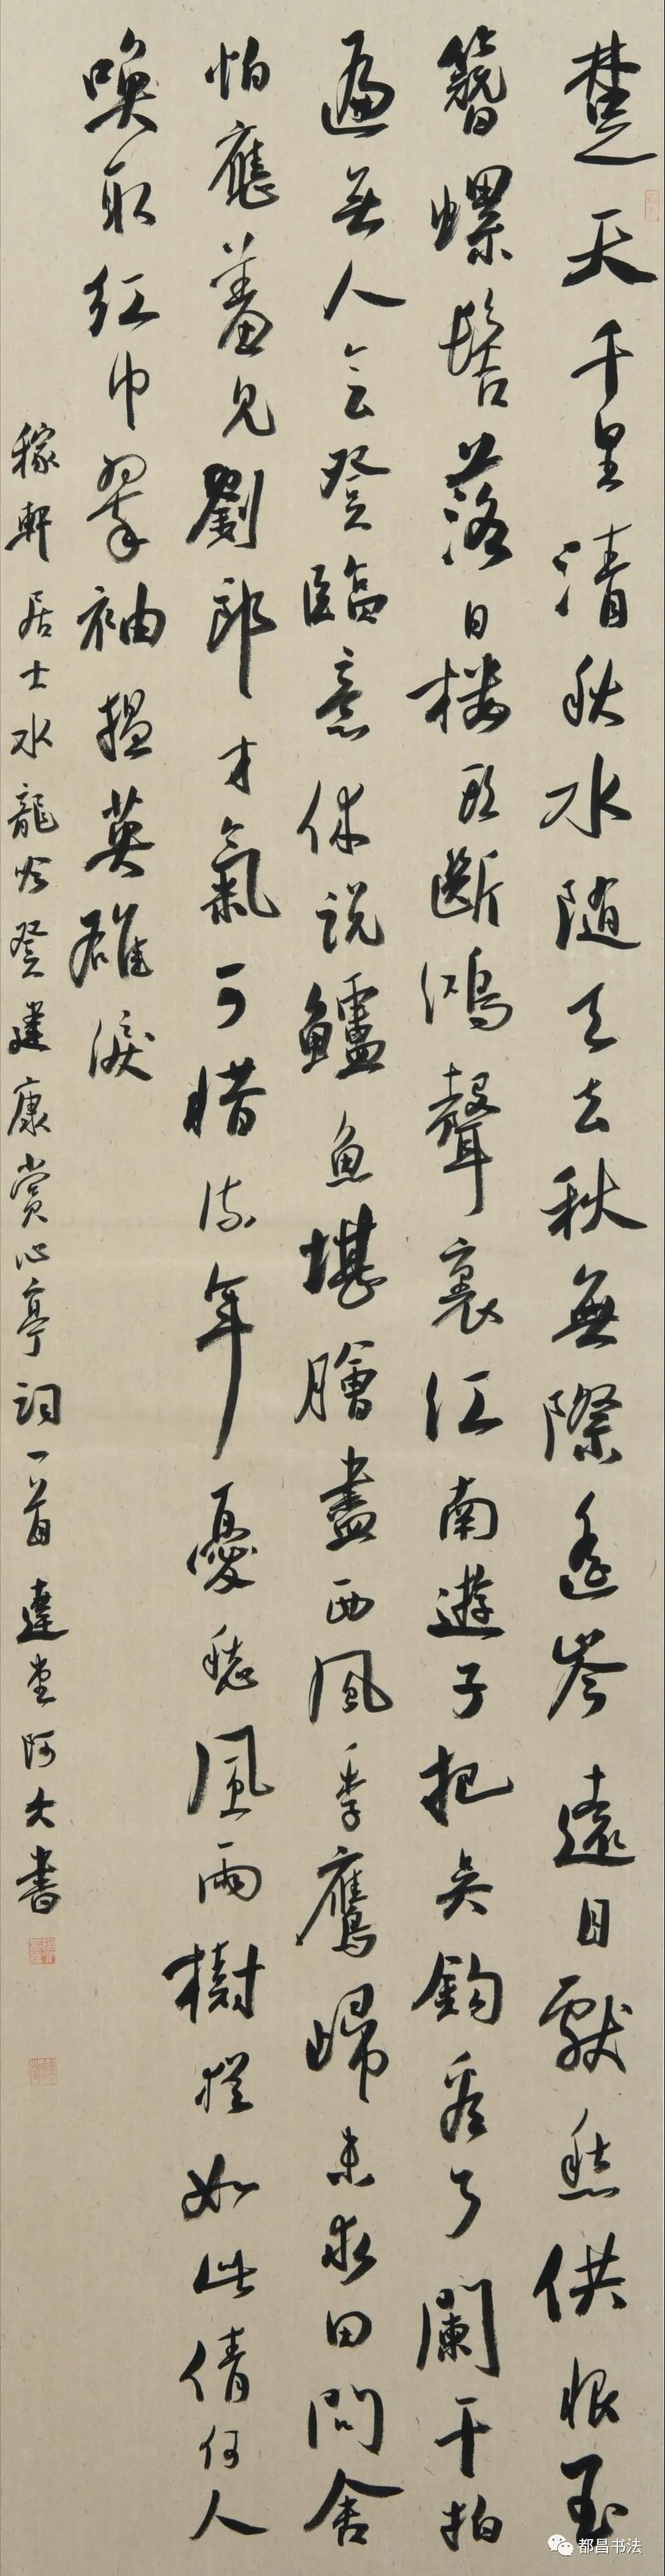 楚天千里清秋水随天去秋無際遥岑遠目獻愁供恨玉
簪螺髻落日楼頭斷鴻聲裏江南遊子把吴鉤看了闌干拍
遍無人会登臨意休説鱸魚堪膾盡西風季鷹歸未求田問舍
怕應羞見劉郎才氣可惜流年憂愁風雨樹猶如此倩何人
唤取紅巾翠袖揾英雄淚
稼軒居士水龍吟登建康賞心亭詞一首達堂阿大書
都昌书法